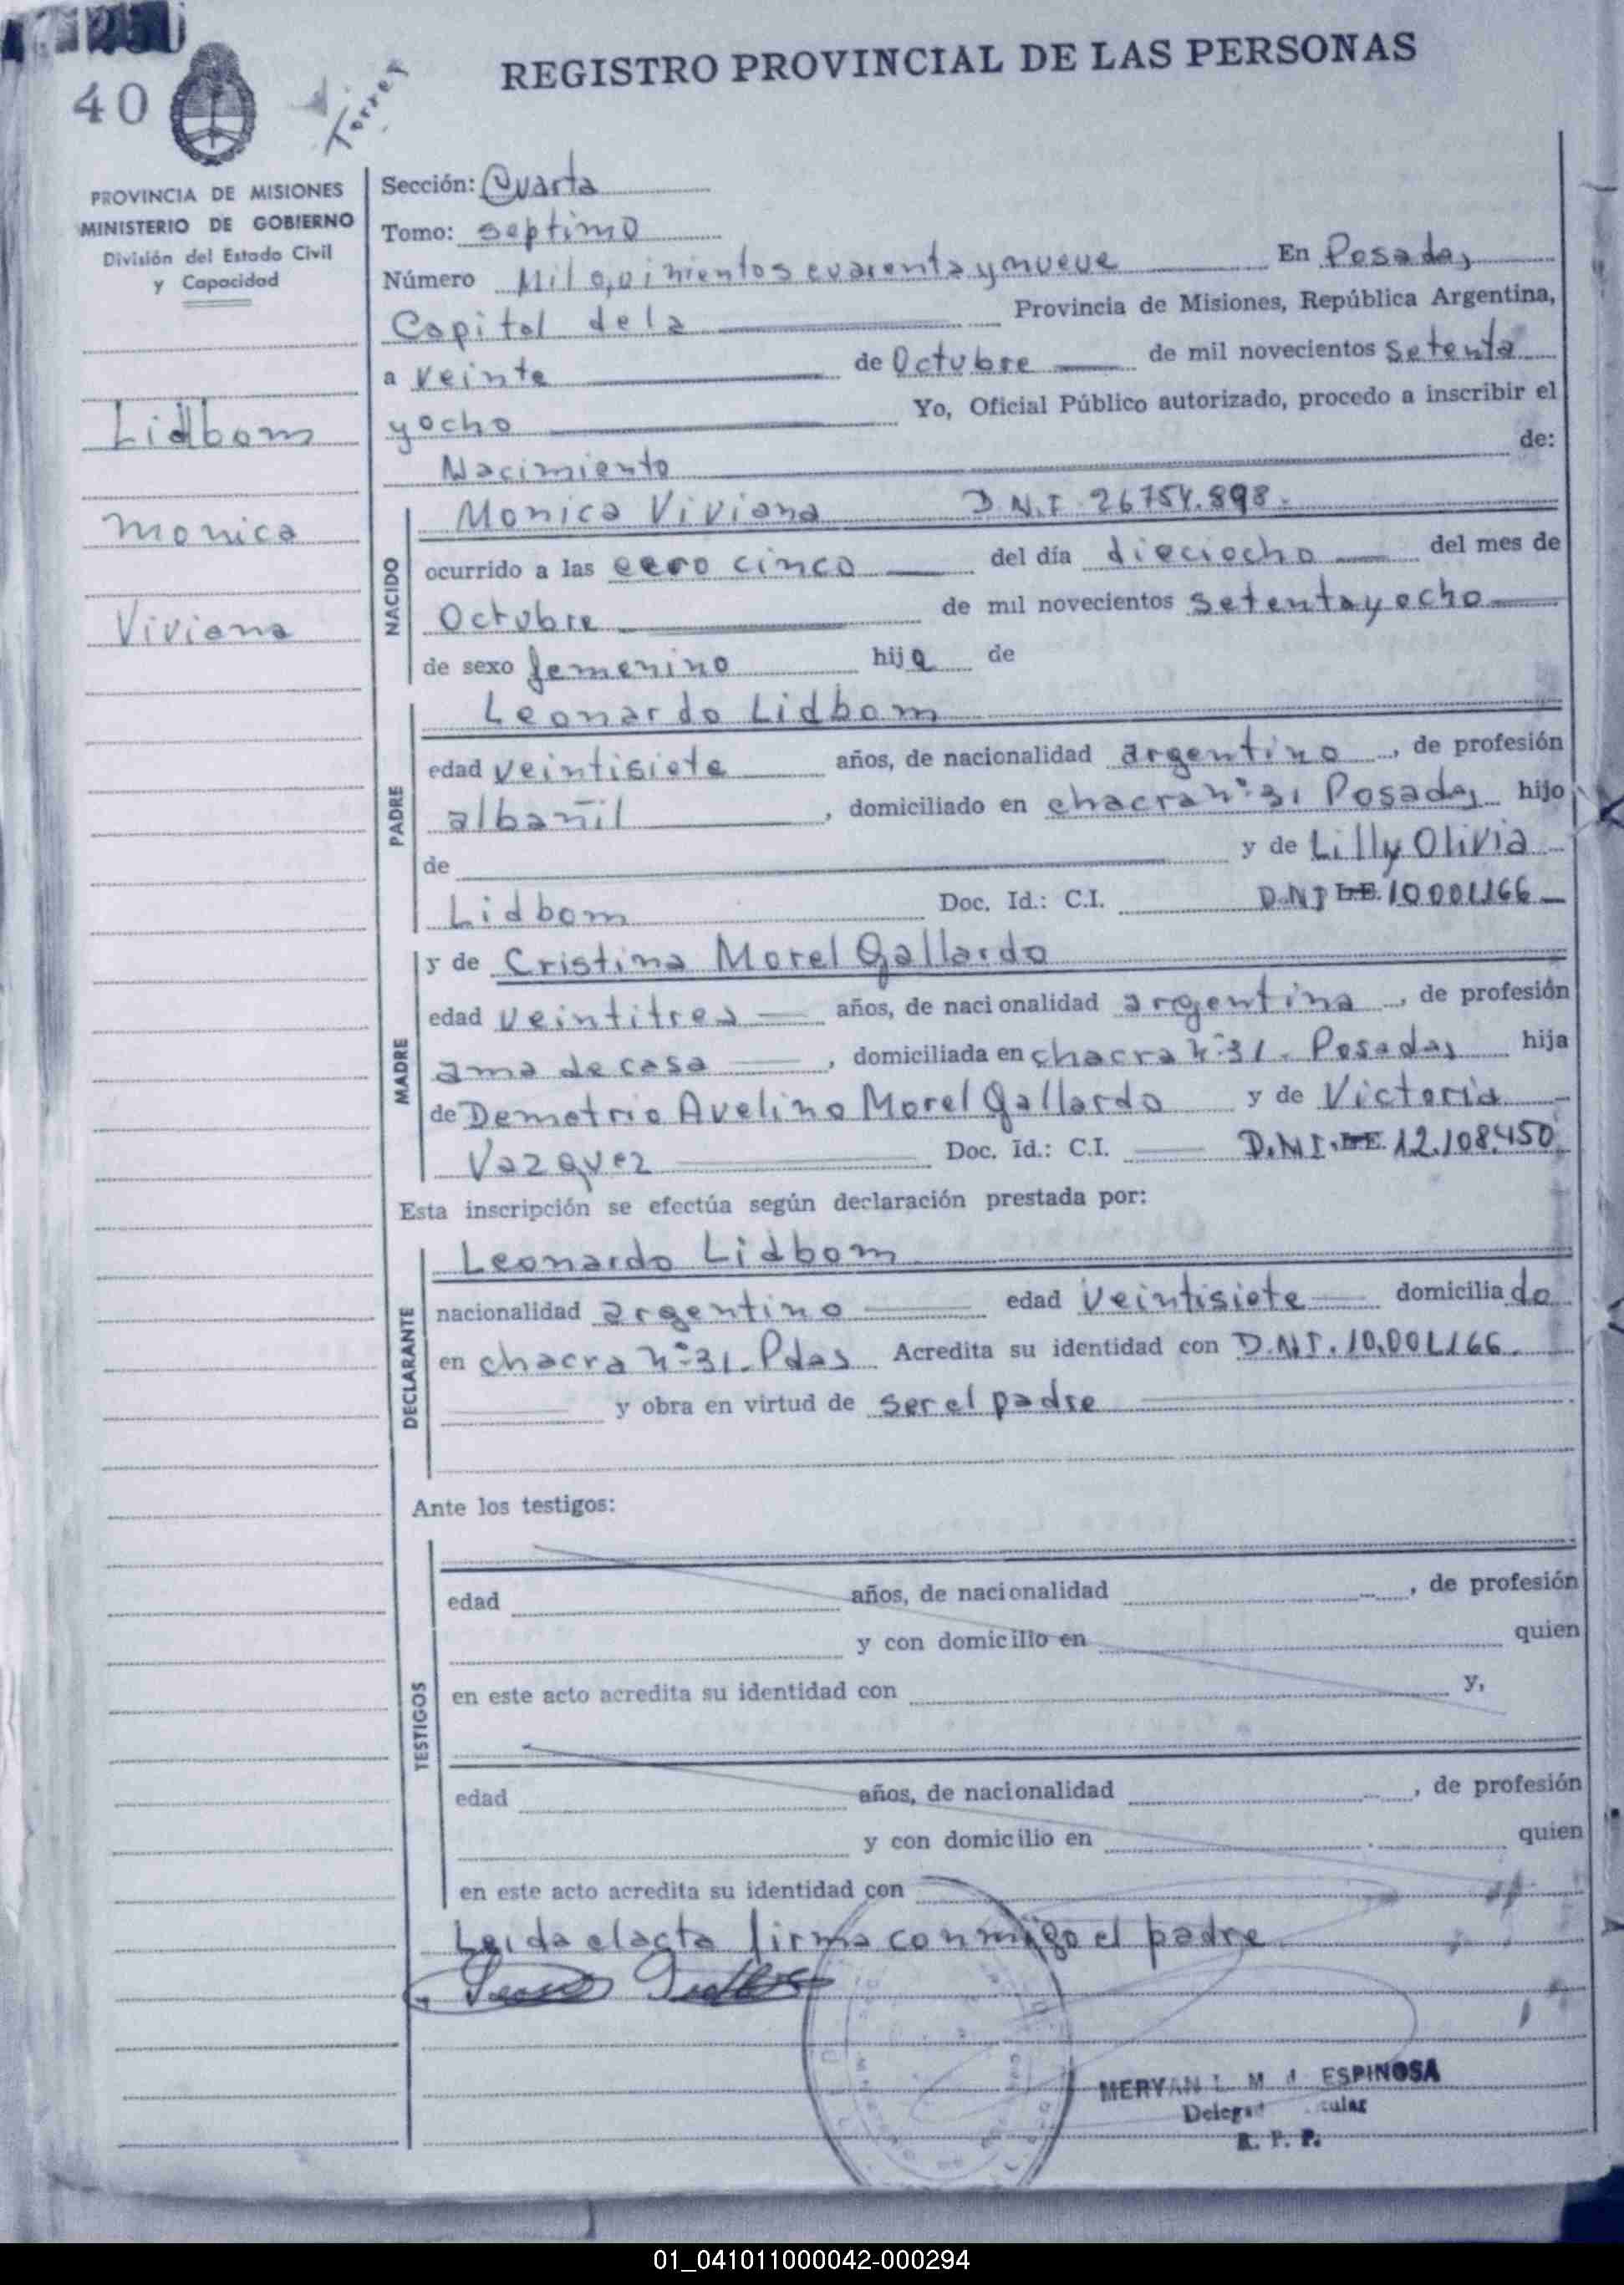 40
Torres
REGISTRO PROVINCIAL DE LAS PERSONAS
PROVINCIA DE MISIONES
MINISTERIO DE GOBIERNO
División del Estado Civil
y Capacidad
Lidbom
Monica
Viviana
Sección: Cuarta
Tomo: septimo
Número Mil quinientos cuarenta y nueve En Posadas
Capital de la Provincia de Misiones, República Argentina,
a veinte de Octubre de mil novecientos setenta
y ocho Yo, Oficial Público autorizado, procedo a inscribir el
Nacimiento de:
NACIDO
Monica Viviana D.N.I. 26.754.898.
ocurrido a las cero cinco del día dieciocho del mes de
Octubre de mil novecientos setenta y ocho
de sexo femenino hija de
PADRE
Leonardo Lidbom
edad veintisiete años, de nacionalidad argentino, de profesión
albañil, domiciliado en chacra n° 31 Posadas hijo
de y de Lilly Olivia
Lidbom Doc. Id.: C.I. D.N.I L.E. 10.001.166
MADRE
y de Cristina Morel Gallardo
edad veintitres años, de nacionalidad argentina, de profesión
ama de casa, domiciliada en chacra n° 31. Posadas hija
de Demetrio Avelino Morel Gallardo y de Victoria
Vazquez Doc. Id.: C.I. D.N.I. L.E. 12.108.450
Esta inscripción se efectúa según declaración prestada por:
DECLARANTE
Leonardo Lidbom
nacionalidad argentino edad veintisiete domiciliado
en chacra n° 31. Pdas Acredita su identidad con D.N.I. 10.001.166.
y obra en virtud de ser el padre
Ante los testigos:
TESTIGOS
edad años, de nacionalidad , de profesión
y con domicilio en quien
en este acto acredita su identidad con y,
edad años, de nacionalidad , de profesión
y con domicilio en quien
en este acto acredita su identidad con
Leida el acta firma conmigo el padre
MERYAN L. M ESPINOSA
R. P. P.
01_041011000042-000294